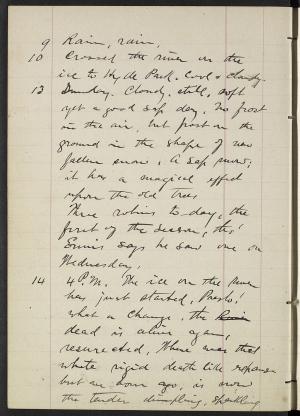 9 Rain, rain,
10 Crossed the river on the
ice to Hyde Park. Cool & cloudy.
13 Sunday. Cloudy, still, soft
yet a good sap day. No frost
in the air, but frost on the
ground in the shape of new
fallen snow. A sap snow,
it has a magical effect
upon the old trees
Three robins to-day, the
first of the season, tho'
Ennis says he saw one on
Wednesday.
14 4 P.M. The ice on the river
has just started, Presto!
what a change, the
dead is alive again,
resurected, Where was that
white rigid death like expanse
but an hour ago, is now
the tender dimpling, sparkling